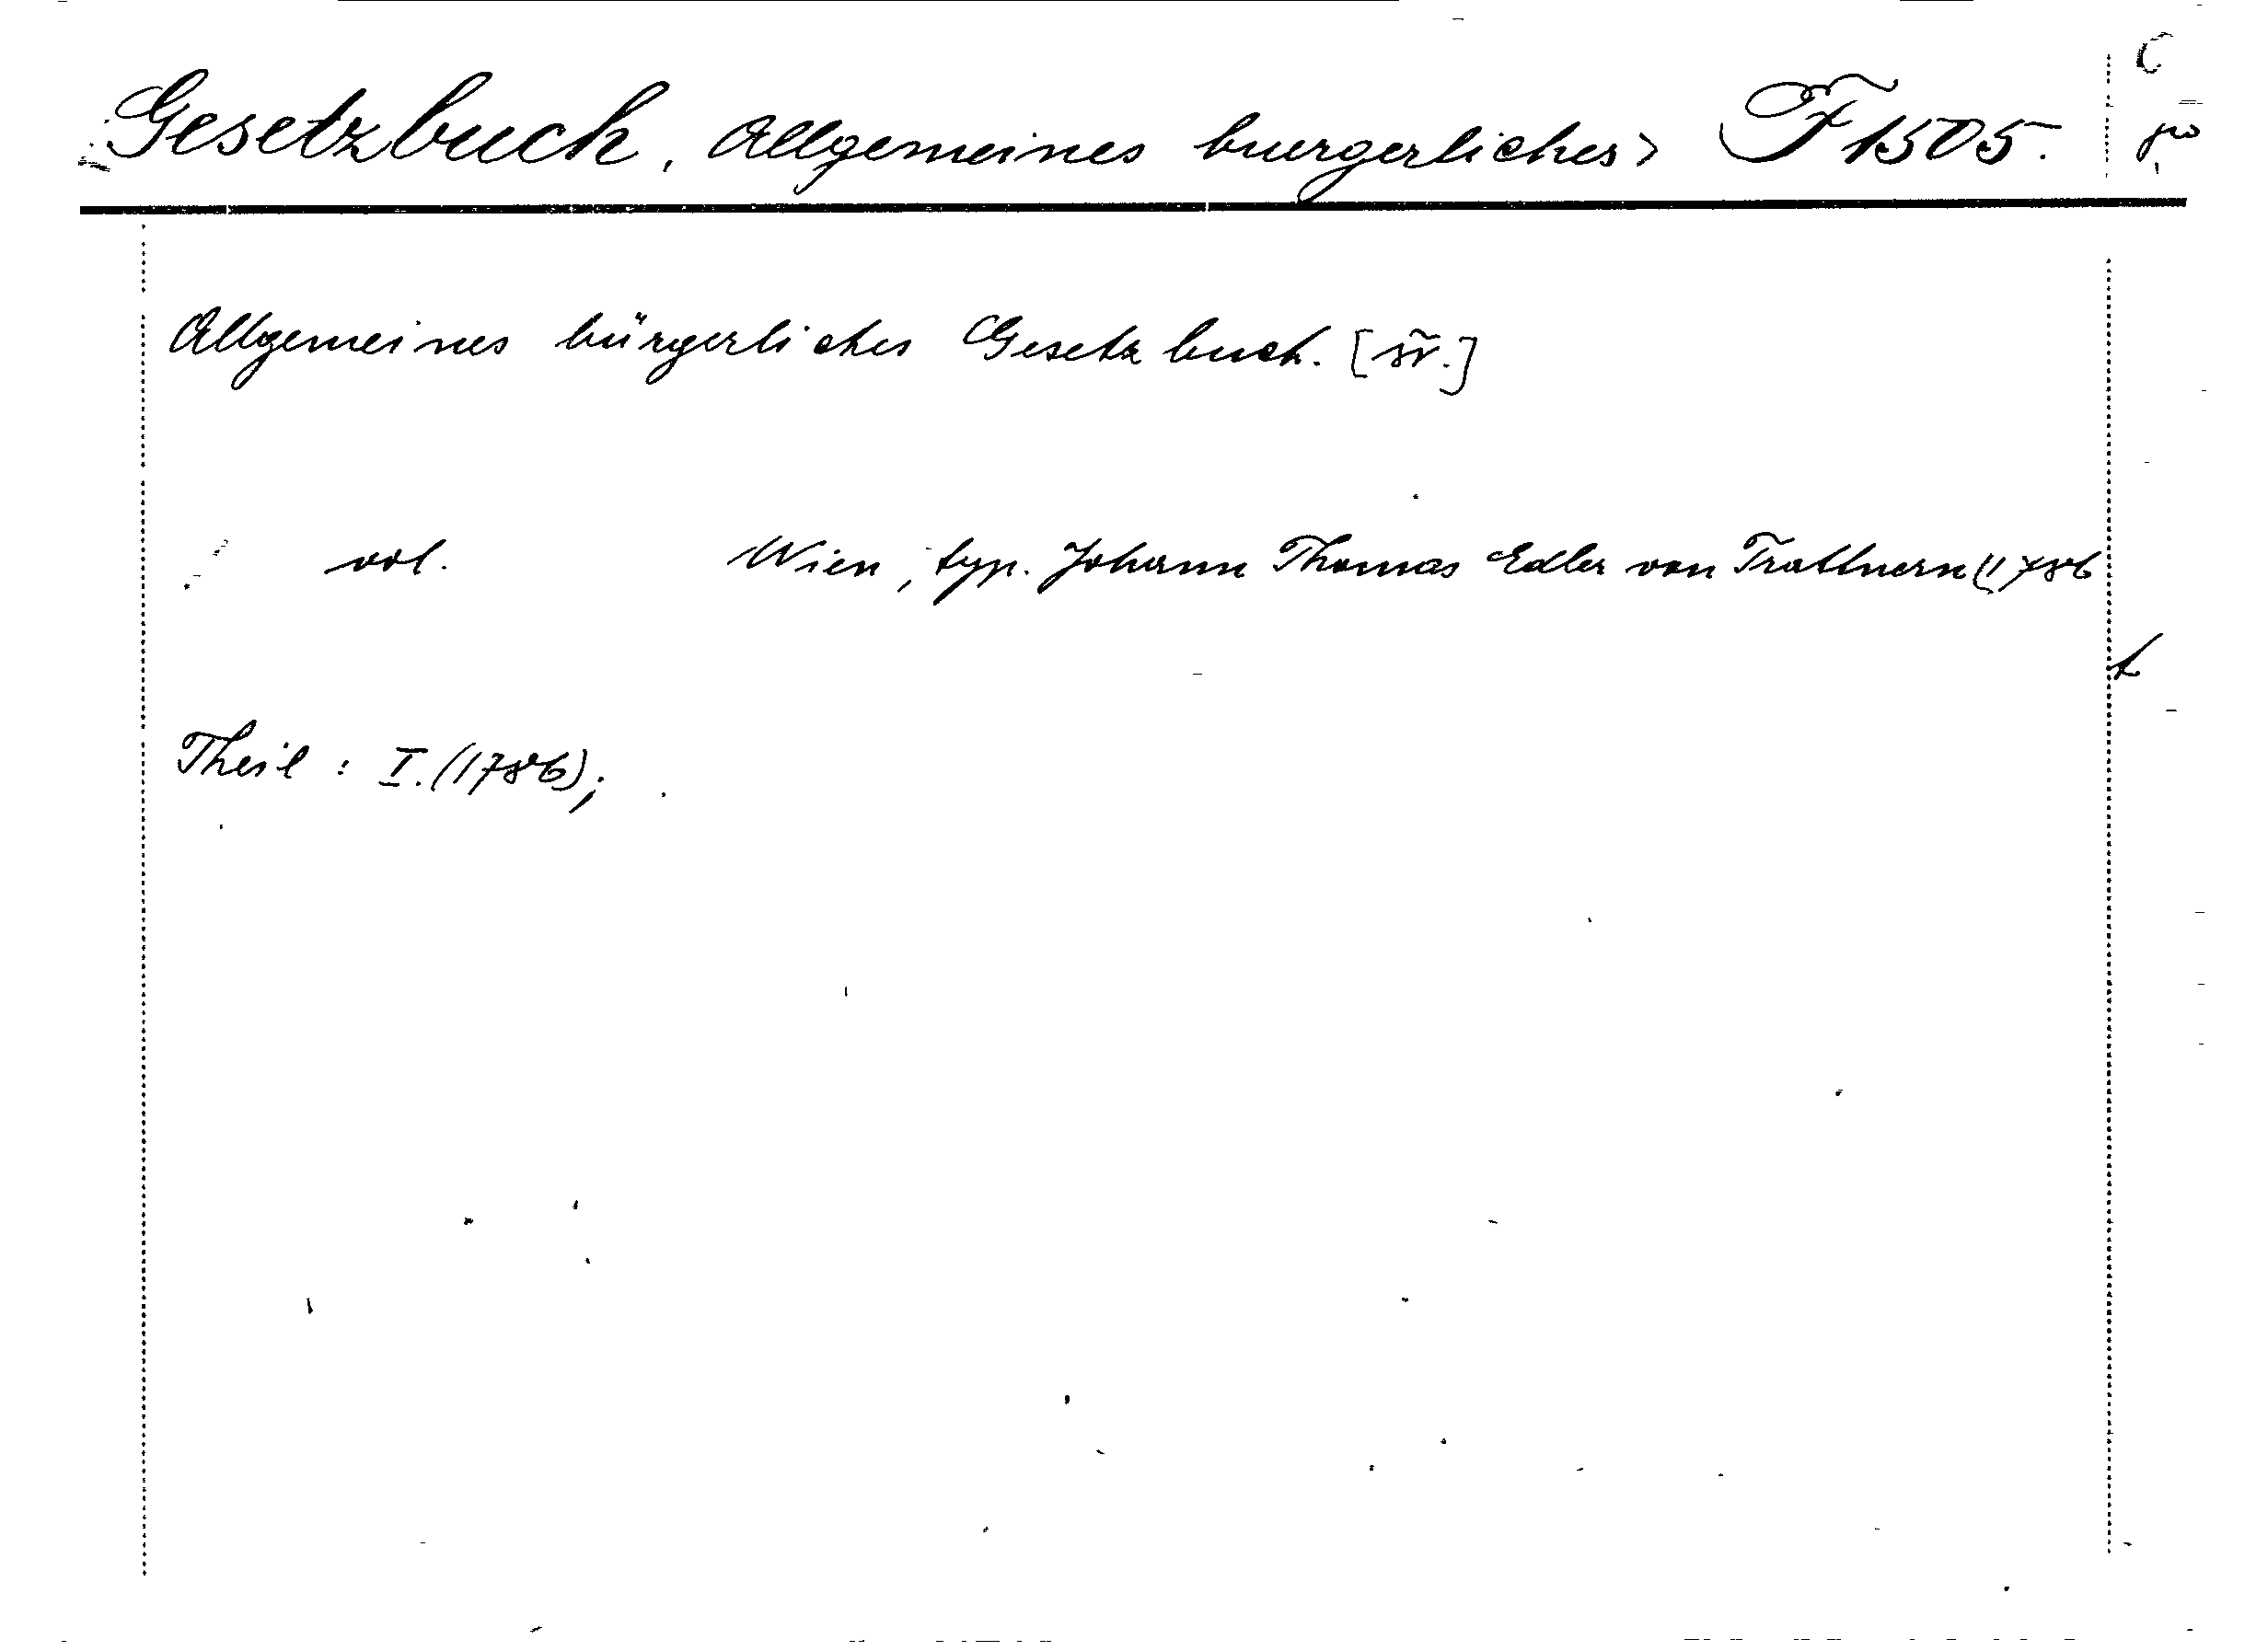 Gesetzbuch, Allgemeines buergerliches> F 1505.
Allgemeines bürgerliches Gesetzbuch.
vol. Wien, typ. Johann Thomas Edler von Trattnern (1786
Theil: I. (1786);